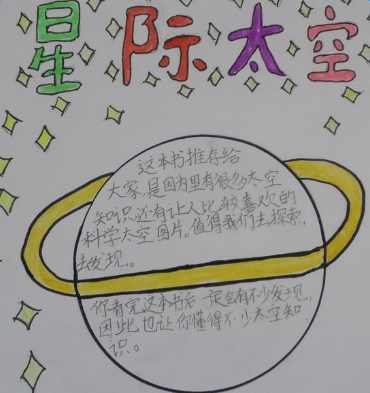 星际太空
这本书推存给
大家,是因为里有很多太空
知识还有让人比较喜欢的
科学太空图片。值得我们去探索,
去发现。
你看完这本书后一定会有不少发现,
因此也让你懂得不少太空知
识。